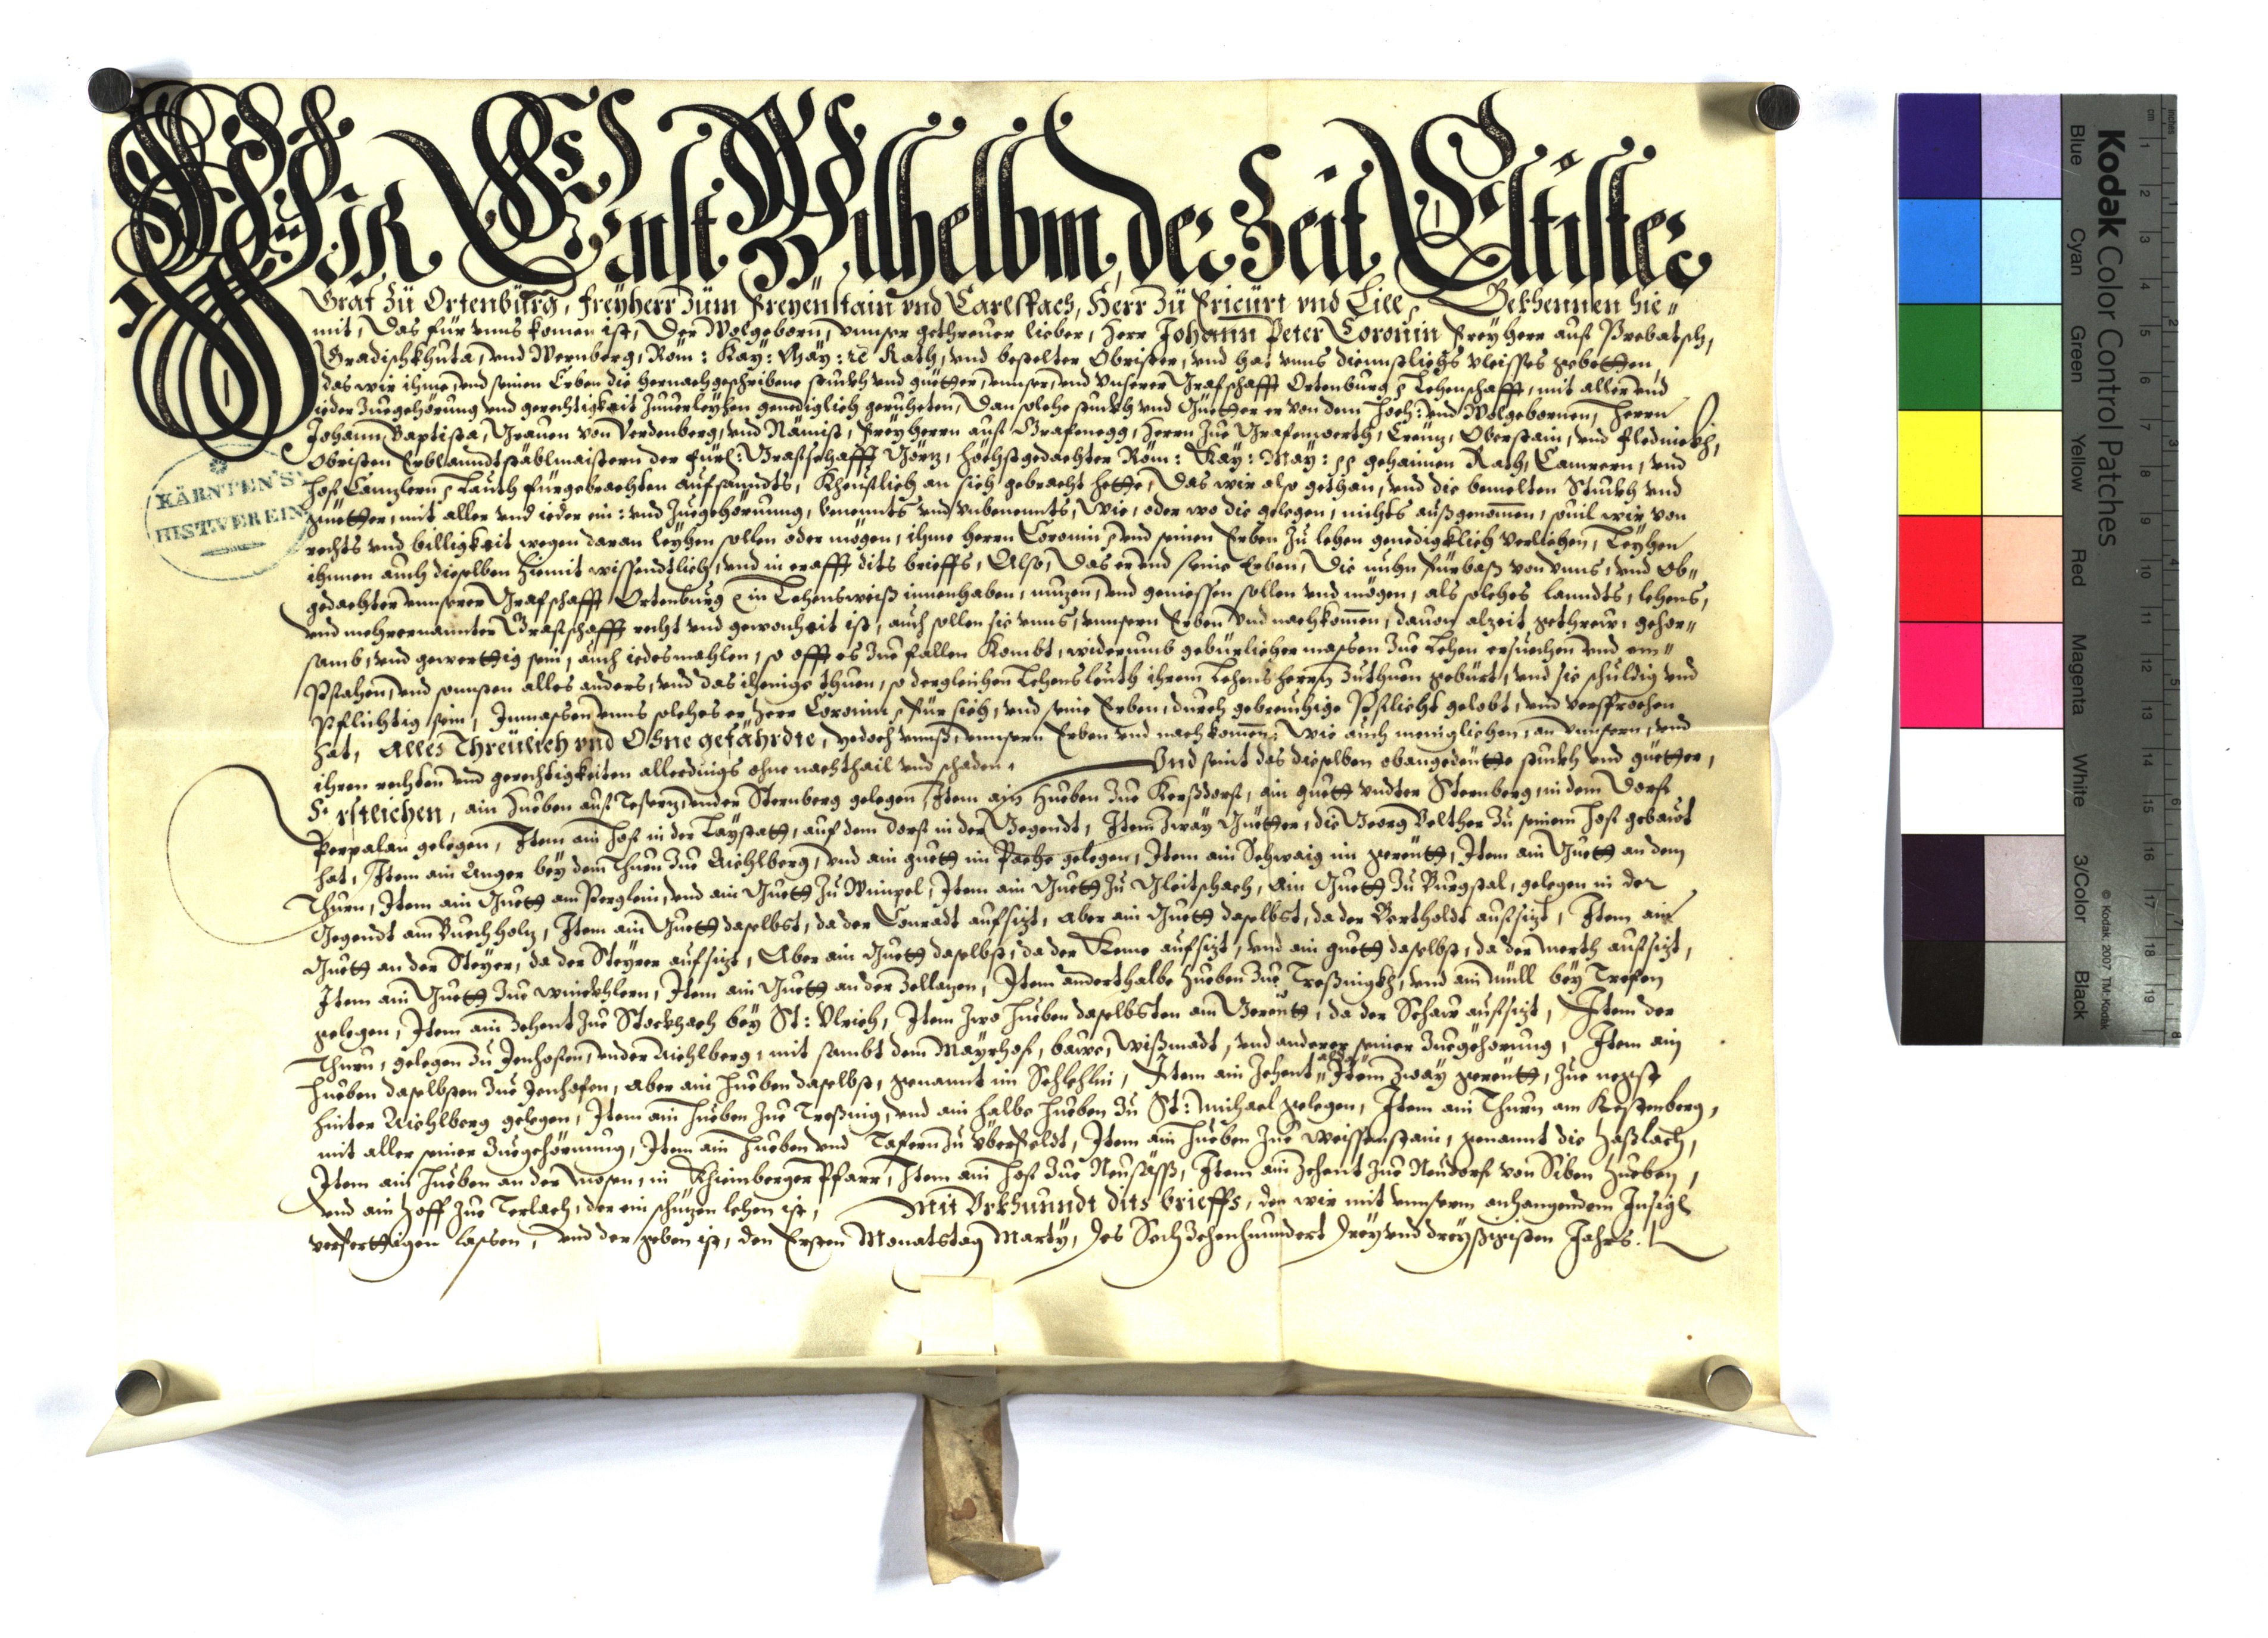 WIR Ernst Wilhelbm, der Zeit Eltister
Graf zü Ortenbürg, freÿherr züm Freÿenstain vnd Carlspach, Herr zü Ericürt vnd Lile, Bekhennen hie„
mit, Das für vnns komen ist, Der Wolgeborn, vnnser gethreuer lieber, Herr Johann Peter Coronin Freÿherr auf Prebatsch,
Gradischkhuta, vnd Wernberg, Röm: Kaÿ: Maÿ: ꝛc Rath, vnd bestelter Obrister, vnd hat vnns diennstliches vleisses gebetten,
das wir ihme, vnd seinen Erben die hernachgeschribene stuckh vnd güetter, vnnser, vnd vnserer Grafschafft Ortenburg Lehenschafft, mit aller vnd
ieder zuegehörung vnd gerechtigkeit zuuerleÿhen genediglich geruheten, Dan solche stuckh vnd Güetter er von dem Hoch: vnd Wolgebornen, Herrn
Johann Baptista, Grauen von Verdenberg, vnd Nämist, freÿherrn auf Grafenegg, Herrn zue Grafenwerth, Creüz, Oberstain, vnd Flednickh,
Obristen Erblanndtstäblmaistern der fürl: Grafschafft Görz, höchstgedachter Röm: Kaÿ: Maÿ: gehaimen Rath, Camrern, vnd
Hof Canzlern Lauth fürgebrachten aufsanndts, Kheuflich an sich gebracht hette, Das wir also gethan, vnd die bemelten Stuckh vnd
güetter, mit aller vnd ieder ein: vnd zuegehörnung, benennts vnd vnbenennts, Wie, oder wo die gelegen, nichts außgenomen, souil wir von
rechts vnd billigkeit wegen daran leÿhen sollen oder mögen, ihme herrn Coronin vnd seinen Erben zu lehen genedigklich verlihen, Leÿhen
ihnnen auch dieselben hiemit wissendtlich, vnd in crafft dits brieffs, Also, Das er vnd seine Erben, Die nuhn fürbaß von vnns, vnd ob„
gedachter vnnserer Grafschafft Ortenburg in Lehensweiß innenhaben, nuzen, vnd geniessen sollen vnd mögen, als solches lanndts, lehens,
vnd mehrernannter Grafschafft recht vnd gewonheit ist, auch sollen sie vnns, vnnsern Erben vnd nachkomen, dauon alzeit gethrew, gehor„
samb, vnd gewerttig sein, auch iedesmahlen, so offt es zue fallen kombt, widerumb gebürlicher massen zue Lehen ersuechen vnd em„
pfahen, vnd sonnsten alles anders, vnd das ihenige thuen, so dergleichen Lehensleuth ihrem Lehensherrn zuthuen gebürt, vnd sie schuldig vnd
Pflichtig sein, Inmassen vnns solches er herr Coronin für sich, vnd seine Erben, durch gebreuchige Pflicht gelobt, vnd versprochen
hat, Alles Threülich vnd Ohne gefährdte, yedoch vnnß, vnnsern Erben vnd nachkomen, Wie auch meniglichen, an vnnsern, vnd
ihren rechten vnd gerechtigkeiten allerdings ohne nachthail vnd schaden. Vnd seint das dieselben obangedeutte stuckh vnd güetter,
Erstlichen, ain hueben auf Tesern, vnder Sternberg gelegen, Item ain hueben zue Kerßdorf, ain guett vndter Sternberg, in dem Dorf
Perpalau gelegen, Item ain Hof in der Laÿstatt, auf dem dorf in der Gegendt, Item zwaÿ Güetter, die Georg Velther zu seinem Hof gebaut
hat, Item ain Anger beÿ dem Thurn zue Aichlberg, vnd ain guett im Pache gelegen, Item ain Schwaig im gereütt, Item ain Guett an dem
Thurn, Item ain Guett am Perglein, vnd ain Guett zu Wimpel, Item ain Guett zu Gleitschach, ain Guett zu Burgstal, gelegen in der
Gegendt am Buechholz, Item ain Guett daselbst, da der Conradt aufsizt, aber ain Guett daselbst, da der Bertholdt aufsizt, Item ain
Guett an der Steÿer, da der Steÿrer aufsizt, Aber ain Guett daselbst, da der Keme aufsizt, vnd ain guett daselbst, da der Merth aufsizt,
Item ain Guett zue Winckhlern, Item ain Guett an der Zellazen, Item anderthalbe hueben zue Treßnigkh, vnd ain müll beÿ Trefen
gelegen, Item ain zehent zue Stockhach beÿ St: Vlrich, Item zwo hueben daselbsten am Gereütt, da der Schaur aufsizt, Item der
Thurn, gelegen zu Jenhofen, vnder Aichlberg, mit sambt dem Maÿrhof, bawe, wißmadt, vnd anderer seiner zuegehörung, Item ain
hueben daselbsten zue Jenhofen, aber ain hueben daselbst, genannt im Schlehlin, Item ain Zehent alda, Item zwaÿ gereütt, zue negst
hinter Aichlberg gelegen, Item ain hueben zue Treßnig, vnd ain halbe hueben zu St: Michael gelegen, Item ain Thurn am Kestenberg,
mit aller seiner zuegehörnung, Item ain hueben vnd Tafern zu Überfeldt, Item ain hueben zue Weissenstain, genannt die Haßlach,
Item ain hueben an der Mosen, in Khienberger Pfarr, Item ain Hof zue Neusäß, Item ain zehent zue Neudorf von Siben hueben,
vnd ain Hoff zue Terlach, der ein schüzen lehen ist, Mit Vrkhunndt dits brieffs, den wir mit vnnserm anhangendem Insigl
verferttigen lassen, vnd der geben ist, den Ersten Monatstag Martÿ, Des Sechzehenhundert Dreÿ vnd dreÿßigisten Jahrs.
KÄRNTEN'S
HIST. VEREIN
Kodak Color Control Patches
Blue Cyan Green Yellow Red Magenta White 3/Color Black
© Kodak, 2007 TM: Kodak
inches 1 2 3 4 5 6 7 8
cm 1 2 3 4 5 6 7 8 9 10 11 12 13 14 15 16 17 18 19